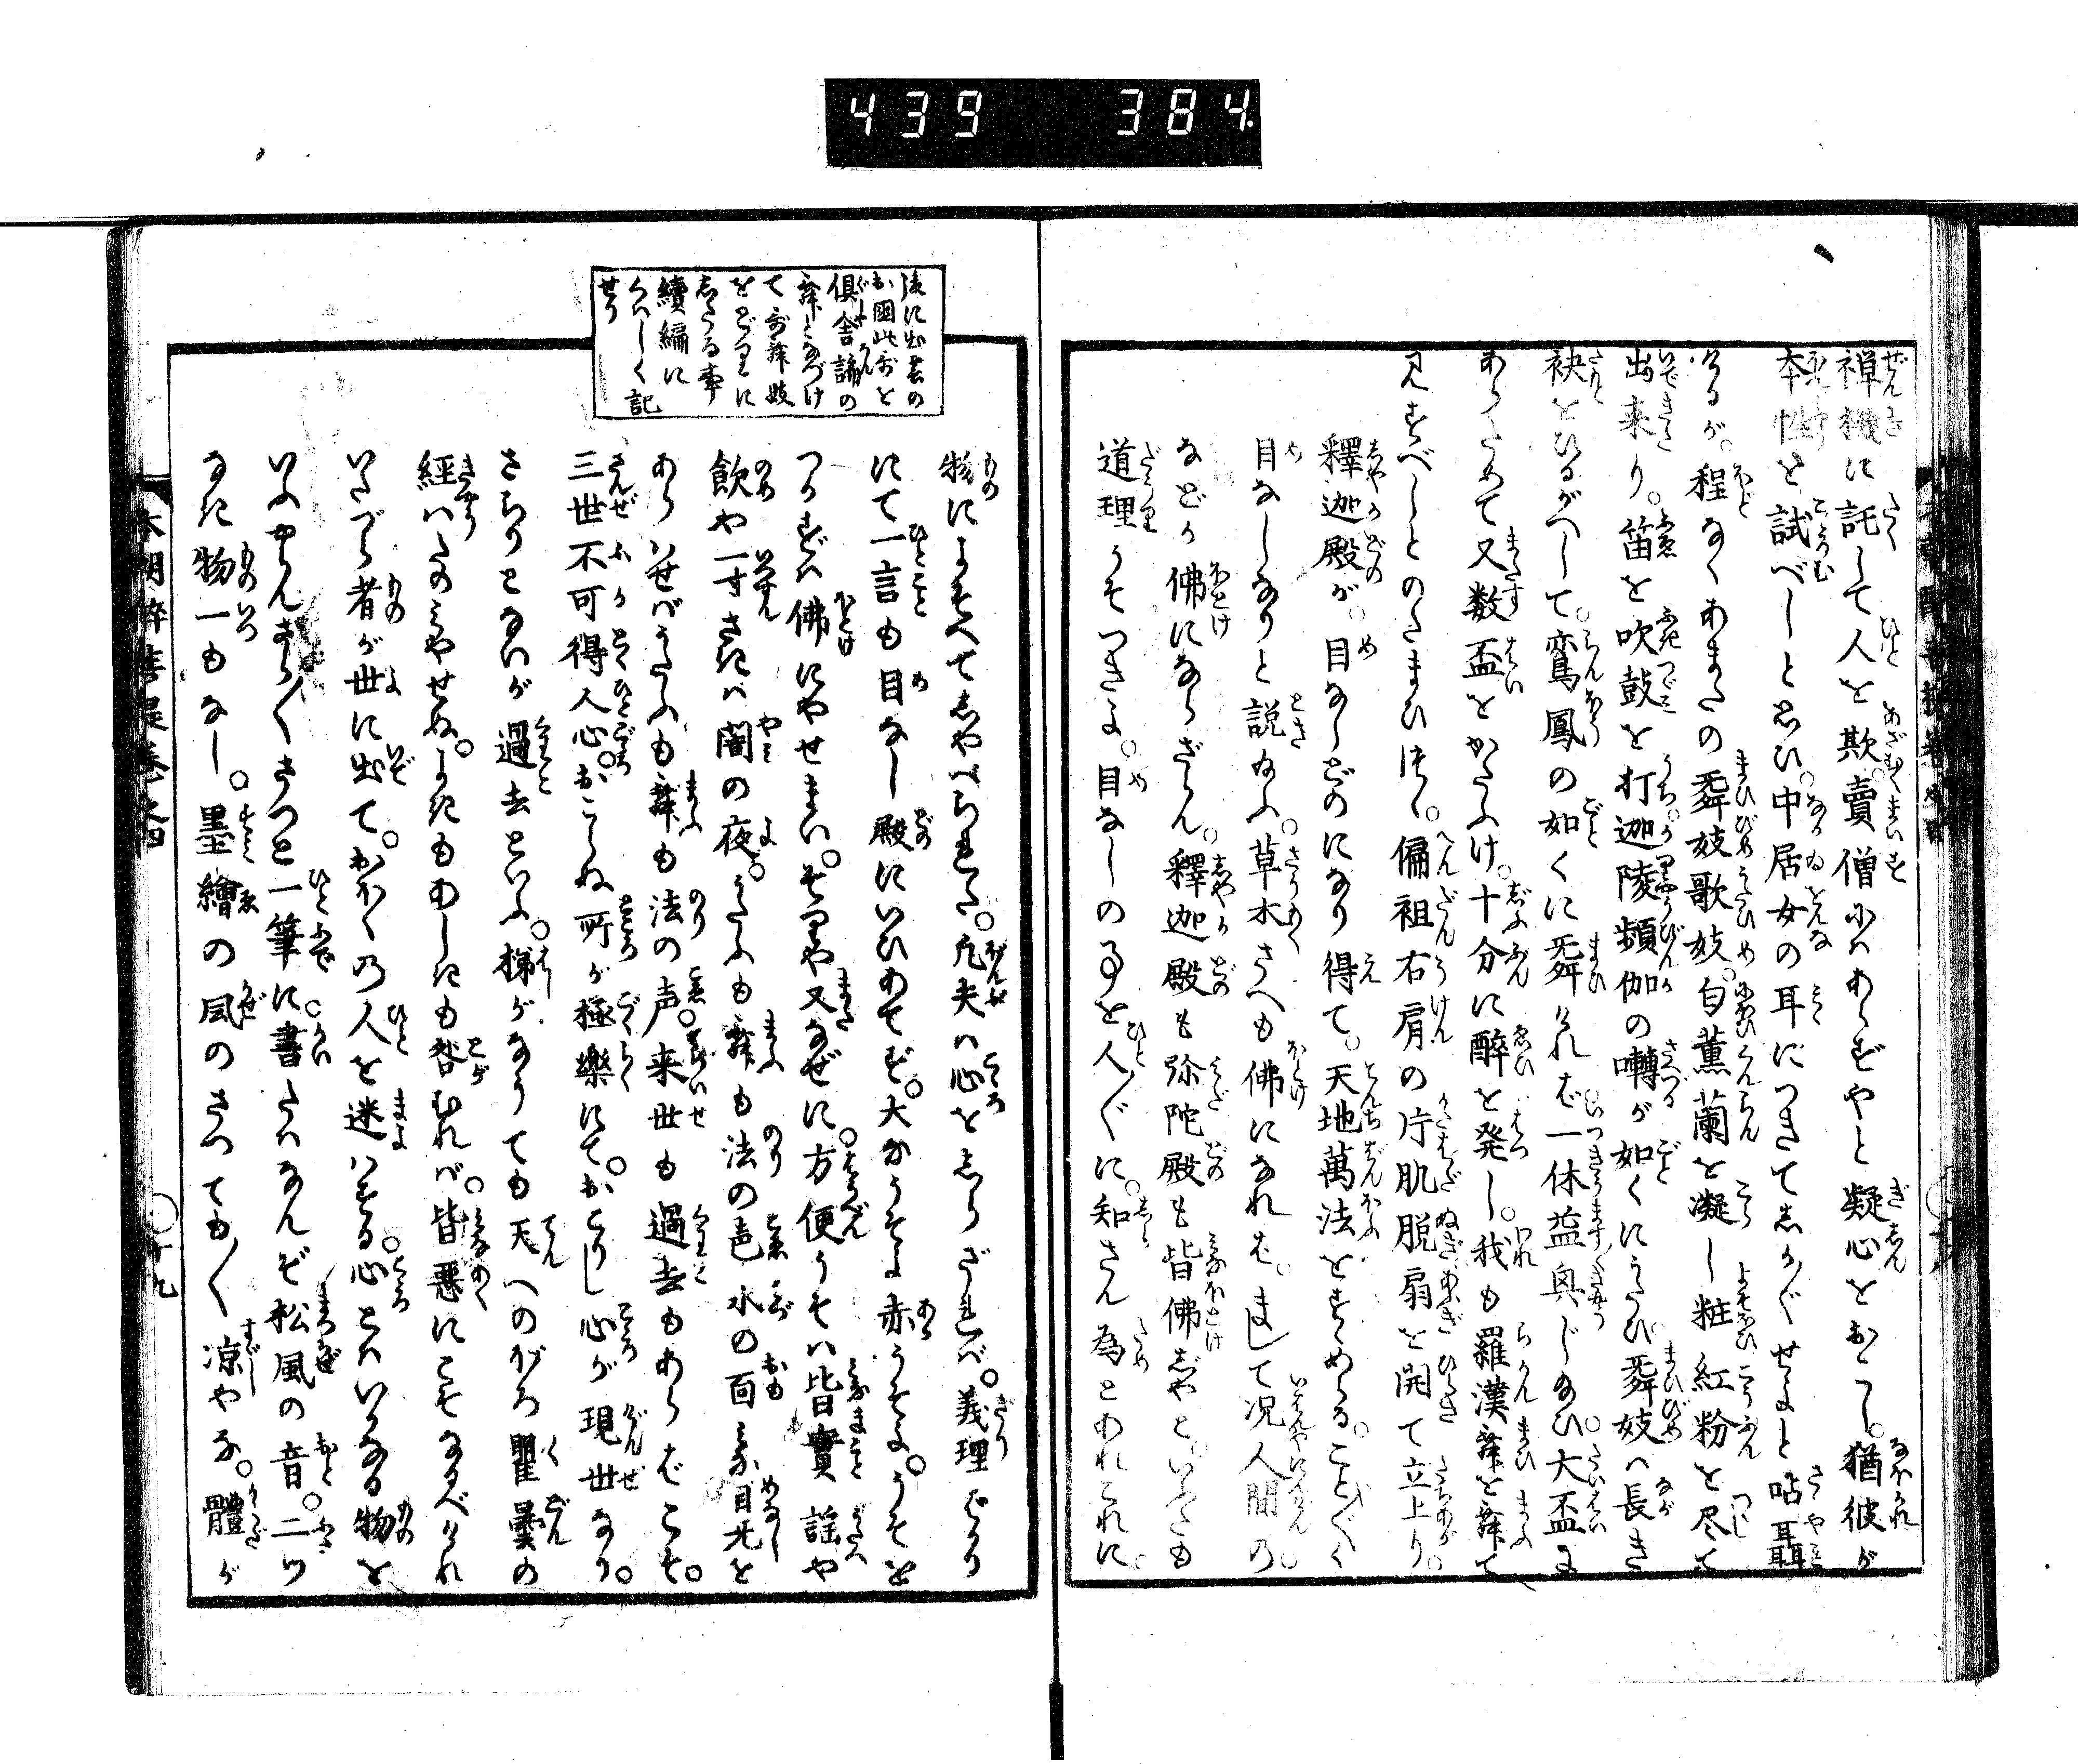 439 384.
禅機に託して人を欺賣僧にはあらずやと疑心をおこし。猶彼が
本性を試べしと思ひ。中居女の耳につきてしかぐせよと呫囁
けるが。程なくあまたの舞妓歌妓。白薫蘭を凝し粧紅粉を尽て
出来り。笛を吹鼓を打迦陵頻伽の囀が如くにうたひ舞妓は長き
袂をひるがへして。鸞鳳の如くに舞ければ一休益興じ給ひ。大盃に
あらためて又数盃をかたふけ。十分に醉を発し。我も羅漢舞を舞て
見すべしとのたまひつゝ。偏袒右肩の片肌脱扇を開て立上り。
釋迦殿が。目なしどのになり得て。天地萬法をすゝめらる。こと〴〵く
目なしなりと説給ふ。草木さへも佛になれば。まして况人間の。
などか佛にならざらん。釋迦殿も弥陀殿も皆佛じやと。いへども
道理うそつきよ。目なしの事を人〴〵に。知さん為とわれこれに。
後に出雲の
お國此哥を
倶舎論の
舞となづけ
て哥舞妓
をどりに
したる事
續編に
くはしく記
せり
物によそへてしやべられた。凡夫は心をしらざれば。義理ばかり
にて一言も目なし殿にいひあてず。大かうそよ赤うそよ。うそを
つかずは佛にやせまい。そりや又なぜに。方便うそは皆實謡や
飲や一寸さきは闇の夜。うたふも舞も法の声水の面みな目无を
あらはせばうたふも舞も法の声。来世も過去もあらばこそ。
三世不可得人心。おこらぬ所が極樂にて。おこりし心が現世なり。
さらりとなひが過去といふ。梯がなうても天へのがる瞿曇の
經はたのみやせぬ。よきもあしきも咎むれば。皆惡にこそなるべけれ
いたづら者が世に出て。おほくの人を迷はする。心とはいかなる物を
いふやらんさら〳〵さつと一筆に。書たはなんぞ松風の音。二ツ
なき物一もなし。墨繪の風のさつても〳〵涼やな。體が
本朝醉菩提巻之四
○十九